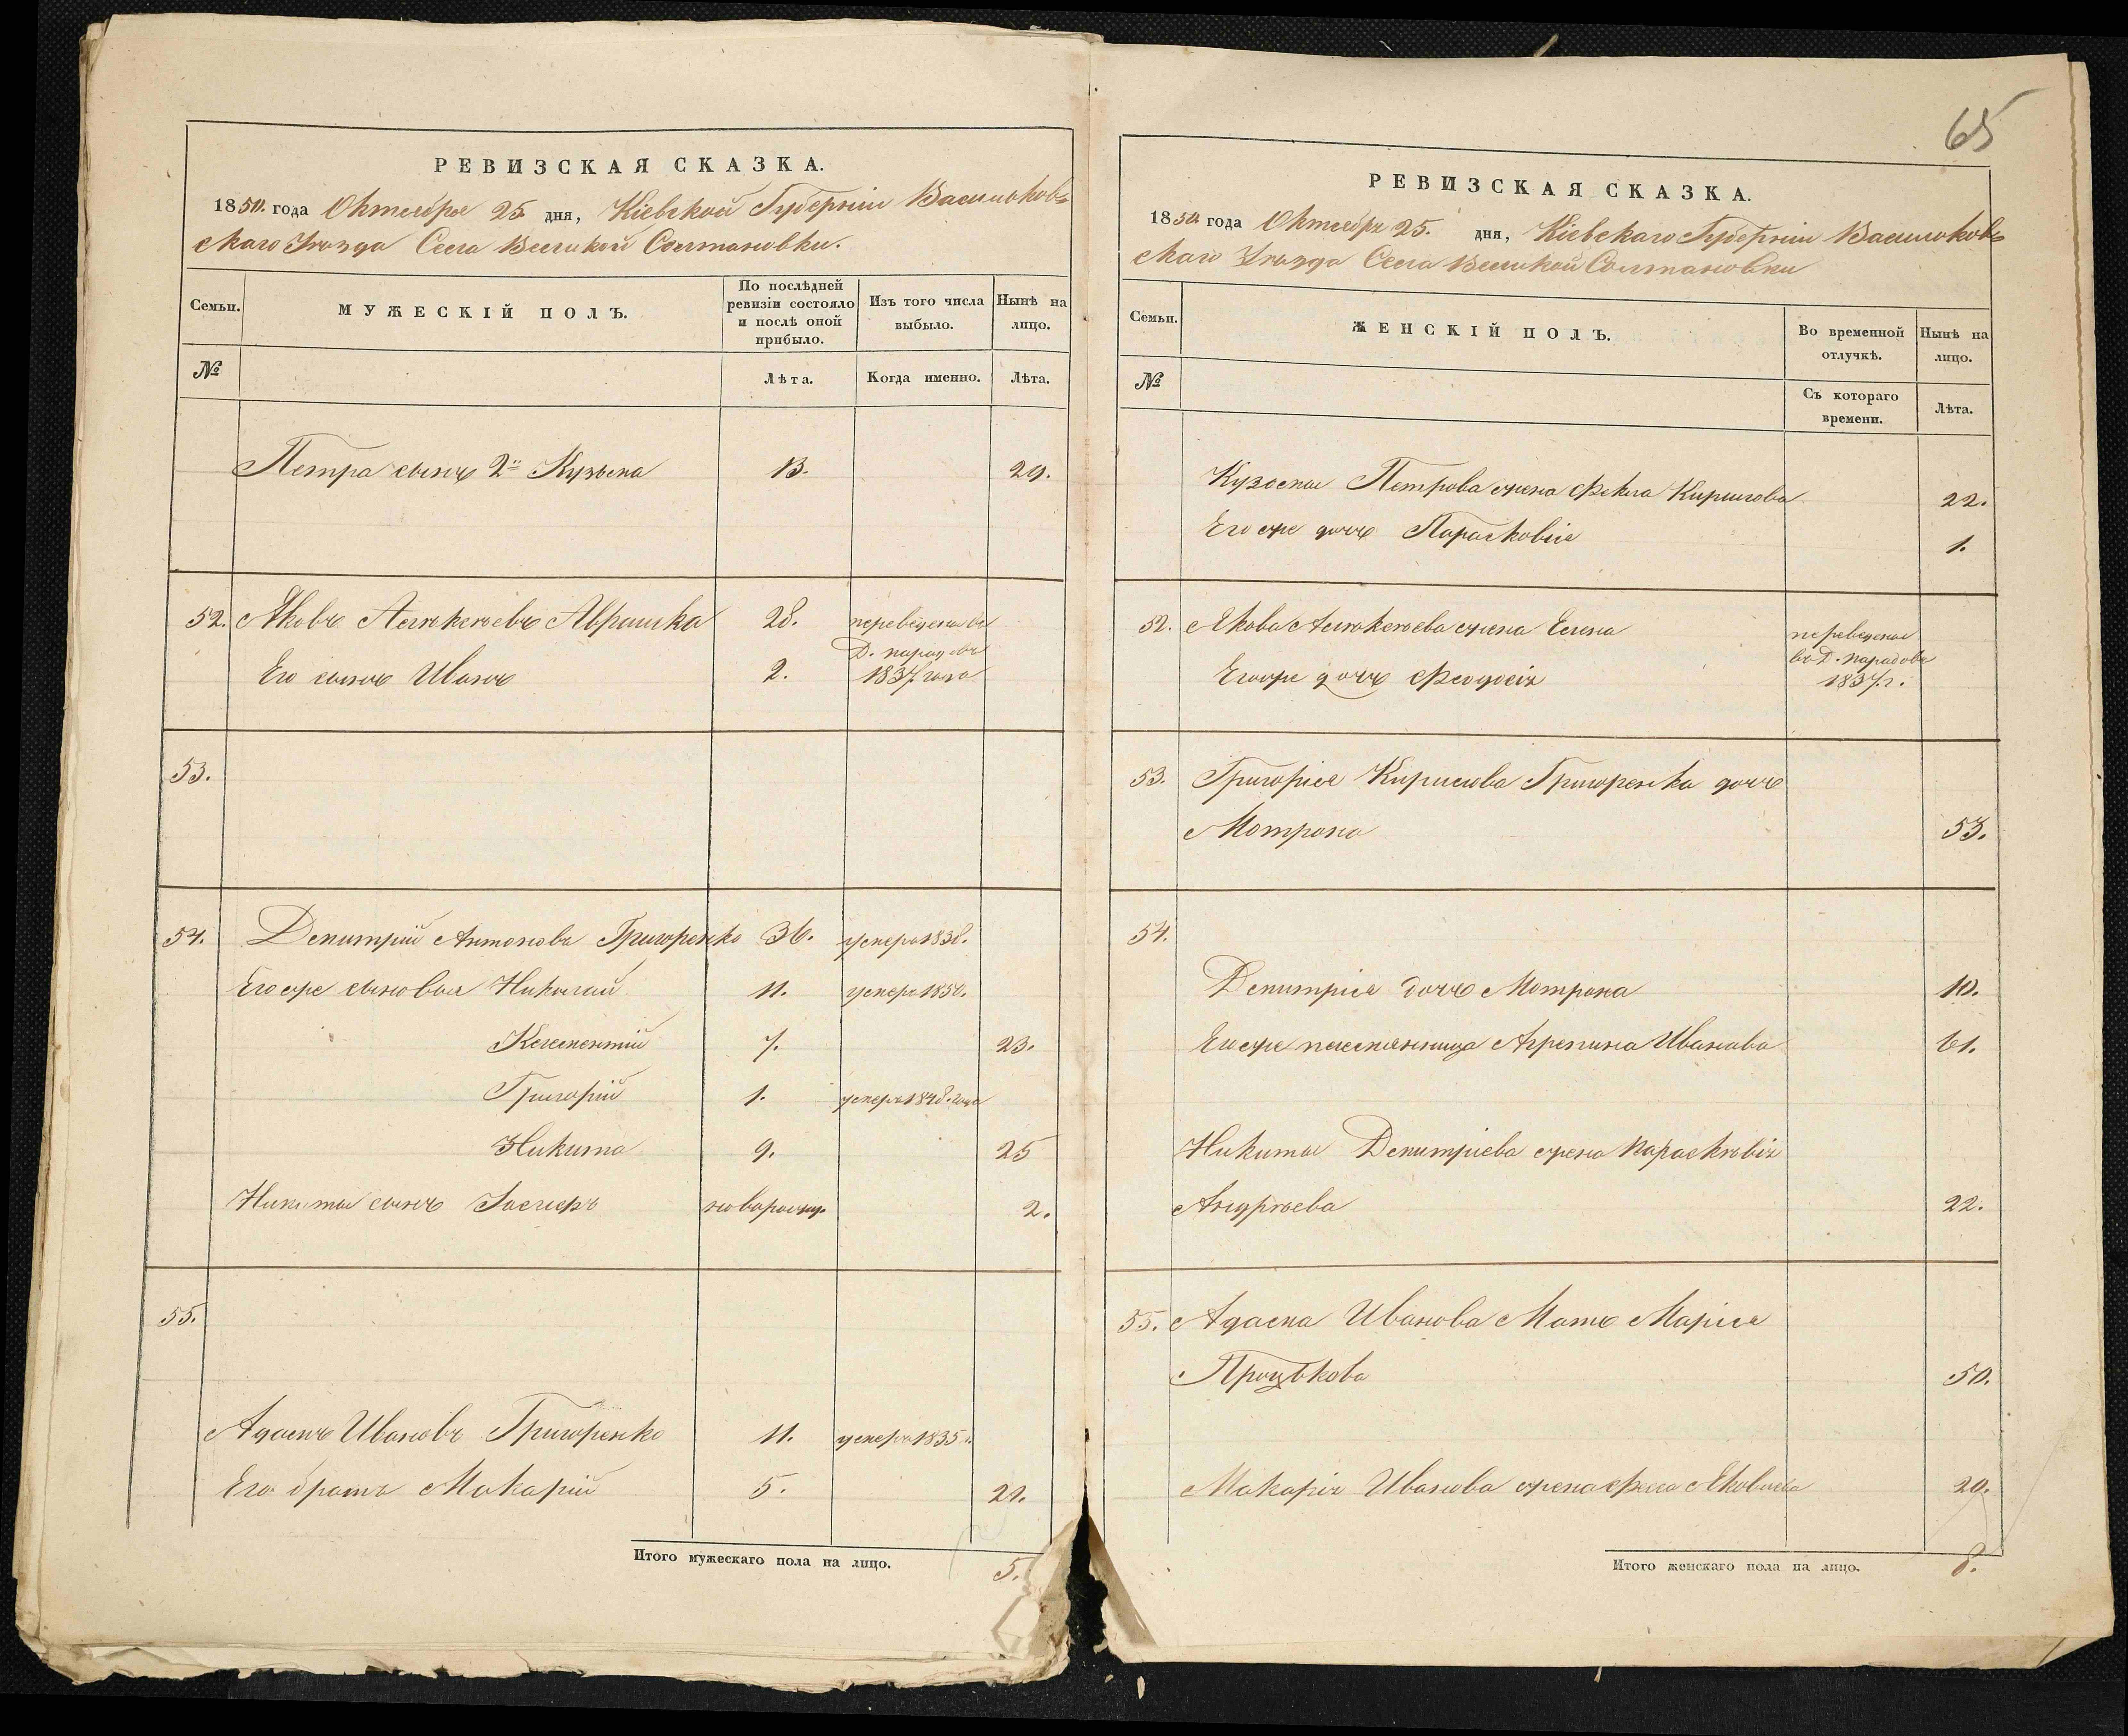 65
РЕВИЗСКАЯ СКАЗКА.
1850. года Октября 25. дня, Кіевской Губерніи Васильков-
скаго Уѣзда Села Великой Солтановки.
Семьи.
МУЖЕСКІЙ ПОЛЪ.
По послѣдней ревизіи состояло и послѣ оной прибыло.
Изъ того числа выбыло.
Нынѣ на лицо.
№
Лѣта.
Когда именно.
Лѣта.
Петра сынъ 2й Кузьма 13. 29.
52. Яковъ Алѣксѣевъ Аврашка 28. переведены въ
Д.
Его сынъ Иванъ 2. 1837 года
53.
54. Демитрій Антоновъ Григоренко 36. умеръ 1838.
Его же сыновья Николай 11. умеръ 1850.
Клементій 7. 23.
Григорій 1. умеръ 1848. года
Никита 9. 25
Никиты сынъ новорожд. 2.
55.
Адамъ Ивановъ Григоренко 11. умеръ 1835.
Его братъ Макарій 5. 21.
Итого мужескаго пола на лицо. 5.
РЕВИЗСКАЯ СКАЗКА.
1850 года Октября 25. дня, Кіевскаго Губерніи Васильков-
скаго Уѣзда Села Великой Солтановки
Семьи.
ЖЕНСКІЙ ПОЛЪ.
Во временной отлучкѣ.
Нынѣ на лицо.
№
Съ котораго времени.
Лѣта.
Кузьмы Петрова жена Фекла Кирилова 22.
Его же дочь Парасковія 1.
52. Якова Алѣксѣева жена Елена переведены
въ Д.
Его же дочь Феодосія 1837 г.
53. Григорія Кирилова Григоренка дочь
Мотрона 53.
54.
Демитрія дочь Мотрона 10.
Его же племянница Агрепина Иванова 61.
Никиты Демитріева жена Парасковія
Андрѣева 22.
55. Адама Иванова Мать Марія
Процькова 50.
Макарія Иванова жена Яковлева 20.
Итого женскаго пола на лицо. 8.